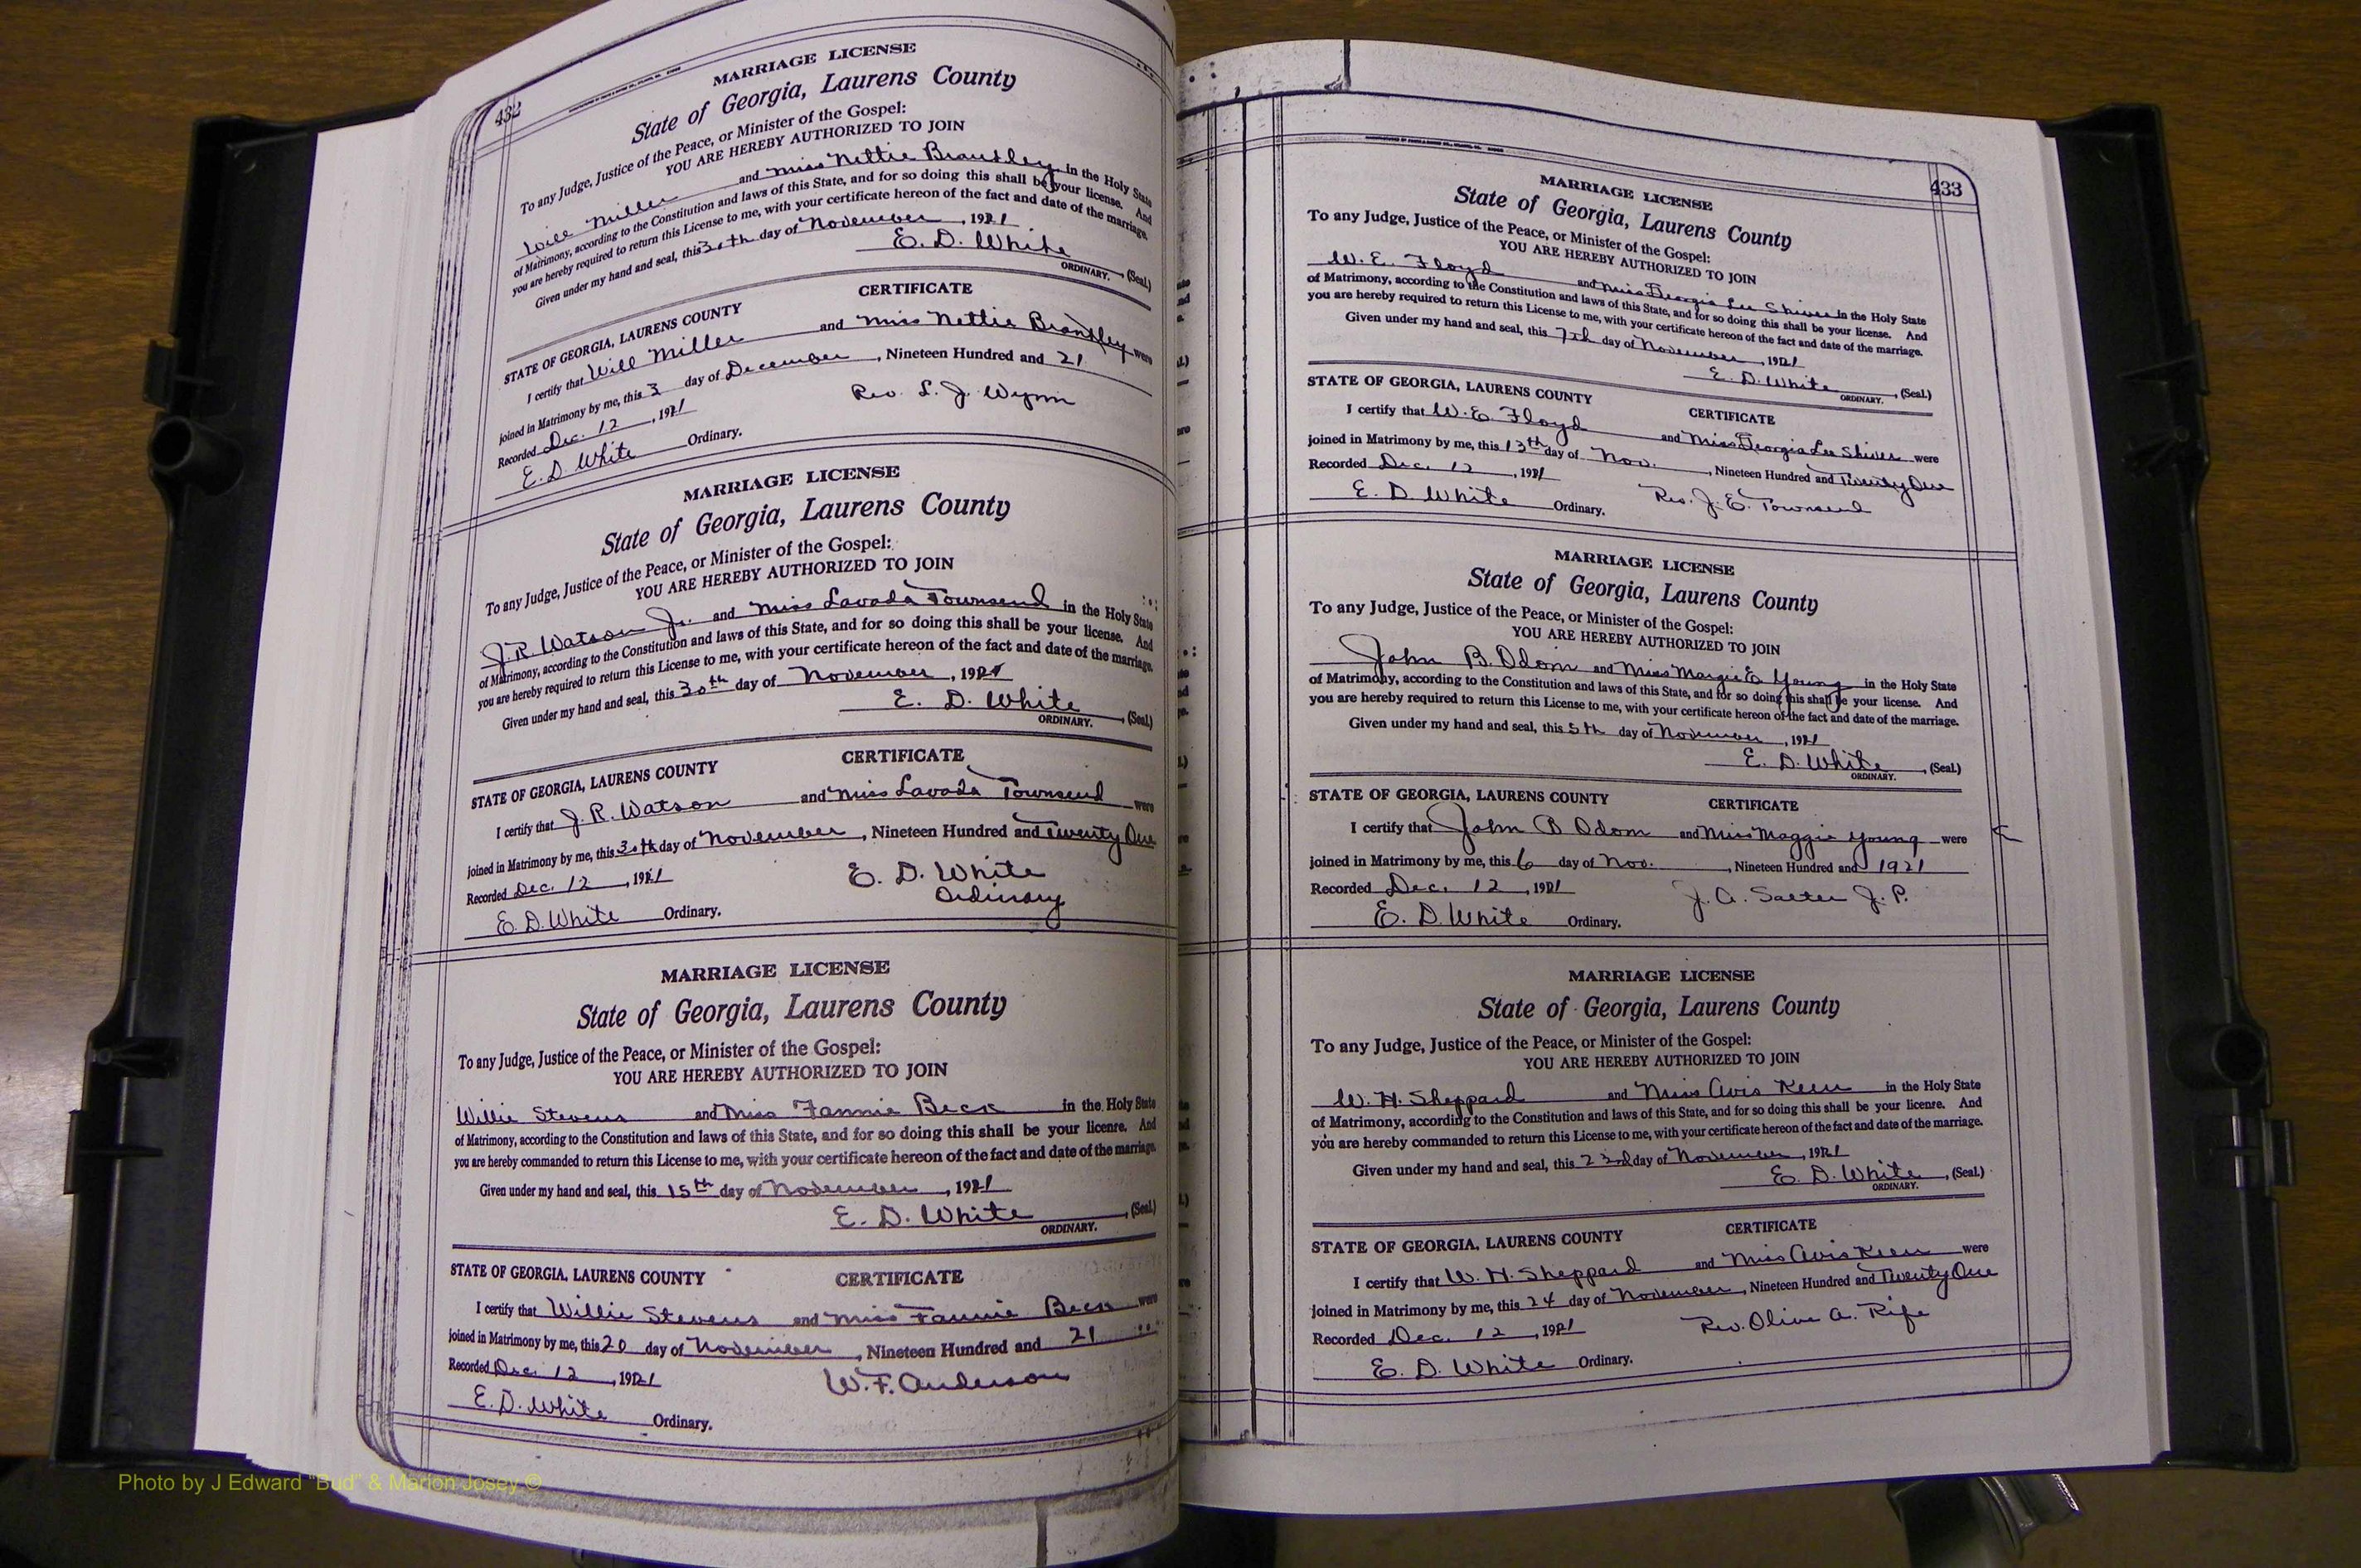 432
MARRIAGE LICENSE
State of Georgia, Laurens County
To any Judge, Justice of the Peace, or Minister of the Gospel:
YOU ARE HEREBY AUTHORIZED TO JOIN
Will Miller and Miss Nettie Brantley in the Holy State
of Matrimony, according to the Constitution and laws of this State, and for so doing this shall be your license. And
you are hereby required to return this License to me, with your certificate hereon of the fact and date of the marriage.
Given under my hand and seal, this 30th day of November, 1921
E. D. White (Seal.)
ORDINARY.
CERTIFICATE
STATE OF GEORGIA, LAURENS COUNTY
I certify that Will Miller and Miss Nettie Brantley were
joined in Matrimony by me, this 3 day of December, Nineteen Hundred and 21
Recorded Dec. 12, 1921 Rev. L. J. Wynn
E. D. White Ordinary.
MARRIAGE LICENSE
State of Georgia, Laurens County
To any Judge, Justice of the Peace, or Minister of the Gospel:
YOU ARE HEREBY AUTHORIZED TO JOIN
J. R. Watson Jr. and Miss Lavada Townsend in the Holy State
of Matrimony, according to the Constitution and laws of this State, and for so doing this shall be your license. And
you are hereby required to return this License to me, with your certificate hereon of the fact and date of the marriage.
Given under my hand and seal, this 30th day of November, 1921
E. D. White (Seal.)
ORDINARY.
CERTIFICATE
STATE OF GEORGIA, LAURENS COUNTY
I certify that J. R. Watson and Miss Lavada Townsend were
joined in Matrimony by me, this 30th day of November, Nineteen Hundred and Twenty One
Recorded Dec. 12, 1921 E. D. White
Ordinary
E. D. White Ordinary.
MARRIAGE LICENSE
State of Georgia, Laurens County
To any Judge, Justice of the Peace, or Minister of the Gospel:
YOU ARE HEREBY AUTHORIZED TO JOIN
Willie Stevens and Miss Fannie Beck in the Holy State
of Matrimony, according to the Constitution and laws of this State, and for so doing this shall be your licenre. And
you are hereby commanded to return this License to me, with your certificate hereon of the fact and date of the marriage.
Given under my hand and seal, this 15th day of November, 1921
E. D. White (Seal.)
ORDINARY.
STATE OF GEORGIA, LAURENS COUNTY CERTIFICATE
I certify that Willie Stevens and Miss Fannie Beck were
joined in Matrimony by me, this 20 day of November, Nineteen Hundred and 21
Recorded Dec. 12, 1921 W. F. Anderson
E. D. White Ordinary.
433
MARRIAGE LICENSE
State of Georgia, Laurens County
To any Judge, Justice of the Peace, or Minister of the Gospel:
YOU ARE HEREBY AUTHORIZED TO JOIN
W. E. Floyd and Miss Georgia Lee Shiver in the Holy State
of Matrimony, according to the Constitution and laws of this State, and for so doing this shall be your license. And
you are hereby required to return this License to me, with your certificate hereon of the fact and date of the marriage.
Given under my hand and seal, this 7th day of November, 1921
E. D. White (Seal.)
ORDINARY.
STATE OF GEORGIA, LAURENS COUNTY
CERTIFICATE
I certify that W. E. Floyd and Miss Georgia Lee Shiver were
joined in Matrimony by me, this 13th day of Nov., Nineteen Hundred and Twenty One
Recorded Dec. 12, 1921 Rev. J. E. Townsend
E. D. White Ordinary.
MARRIAGE LICENSE
State of Georgia, Laurens County
To any Judge, Justice of the Peace, or Minister of the Gospel:
YOU ARE HEREBY AUTHORIZED TO JOIN
John B. Odom and Miss Margie E Young in the Holy State
of Matrimony, according to the Constitution and laws of this State, and for so doing this shall be your license. And
you are hereby required to return this License to me, with your certificate hereon of the fact and date of the marriage.
Given under my hand and seal, this 5th day of November, 1921
E. D. White (Seal.)
ORDINARY.
STATE OF GEORGIA, LAURENS COUNTY CERTIFICATE
I certify that John B Odom and Miss Maggie Young were
joined in Matrimony by me, this 6 day of Nov., Nineteen Hundred and 1921
Recorded Dec. 12, 1921 J. A. Salter J. P.
E. D. White Ordinary.
MARRIAGE LICENSE
State of Georgia, Laurens County
To any Judge, Justice of the Peace, or Minister of the Gospel:
YOU ARE HEREBY AUTHORIZED TO JOIN
W. H. Sheppard and Miss Avis Keen in the Holy State
of Matrimony, according to the Constitution and laws of this State, and for so doing this shall be your licenre. And
you are hereby commanded to return this License to me, with your certificate hereon of the fact and date of the marriage.
Given under my hand and seal, this 23rd day of November, 1921
E. D. White (Seal.)
ORDINARY.
CERTIFICATE
STATE OF GEORGIA, LAURENS COUNTY
I certify that W. H. Sheppard and Miss Avis Keen were
joined in Matrimony by me, this 24 day of November, Nineteen Hundred and Twenty One
Recorded Dec. 12, 1921 Rev. Olive A. Rife
E. D. White Ordinary.
Photo by J Edward "Bud" & Marion Josey ©